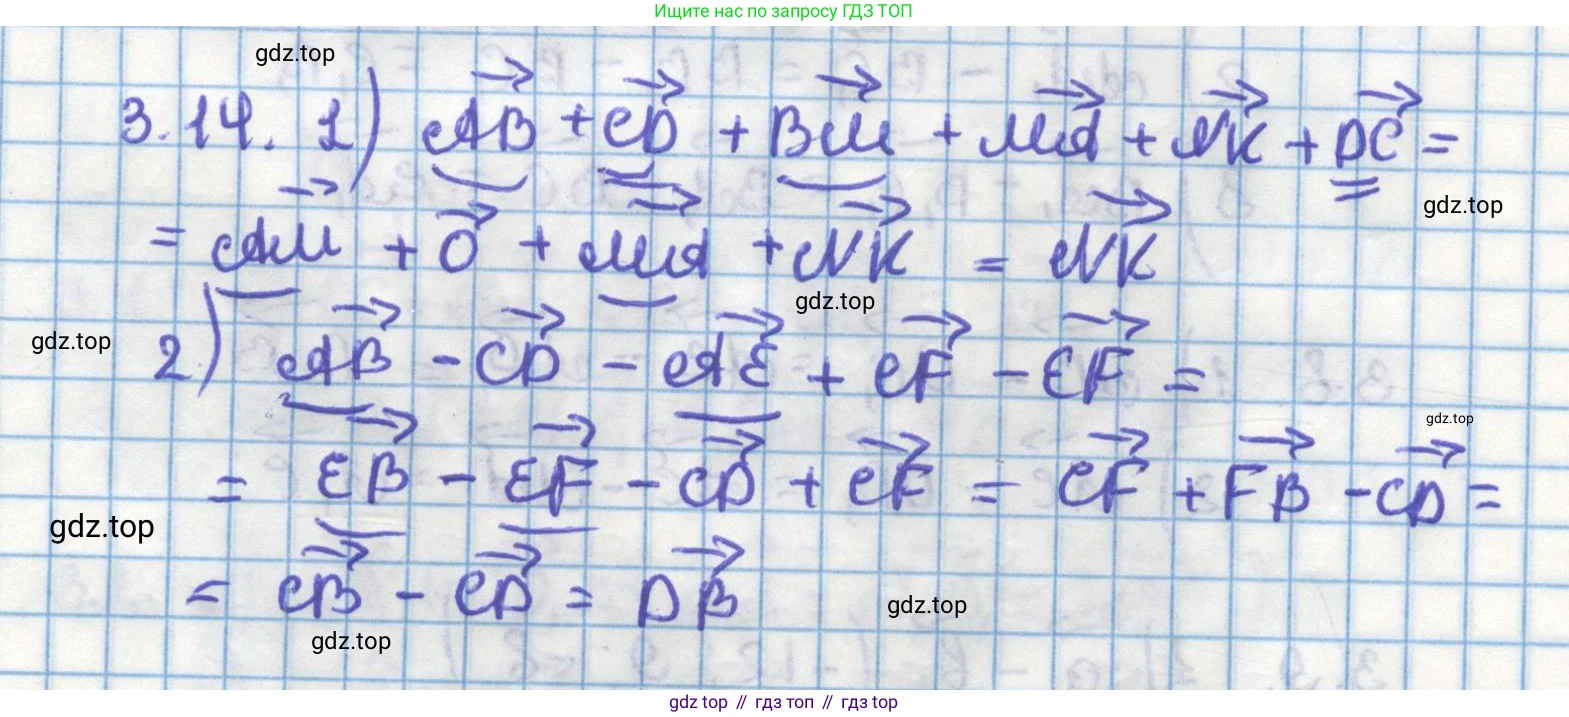 Ищите нас по запросу ГДЗ ТОП
gdz.top
3.14. 1) AB + CD + BM + MA + NK + DC =
gdz.top
= AM + 0 + MA + NK = NK
gdz.top
gdz.top
2) AB - CD - AE + CF - EF =
gdz.top
= EB - EF - CD + CF = CF + FB - CD =
gdz.top
= CB - CD = DB
gdz.top
gdz.top
gdz top // гдз топ // gdz top